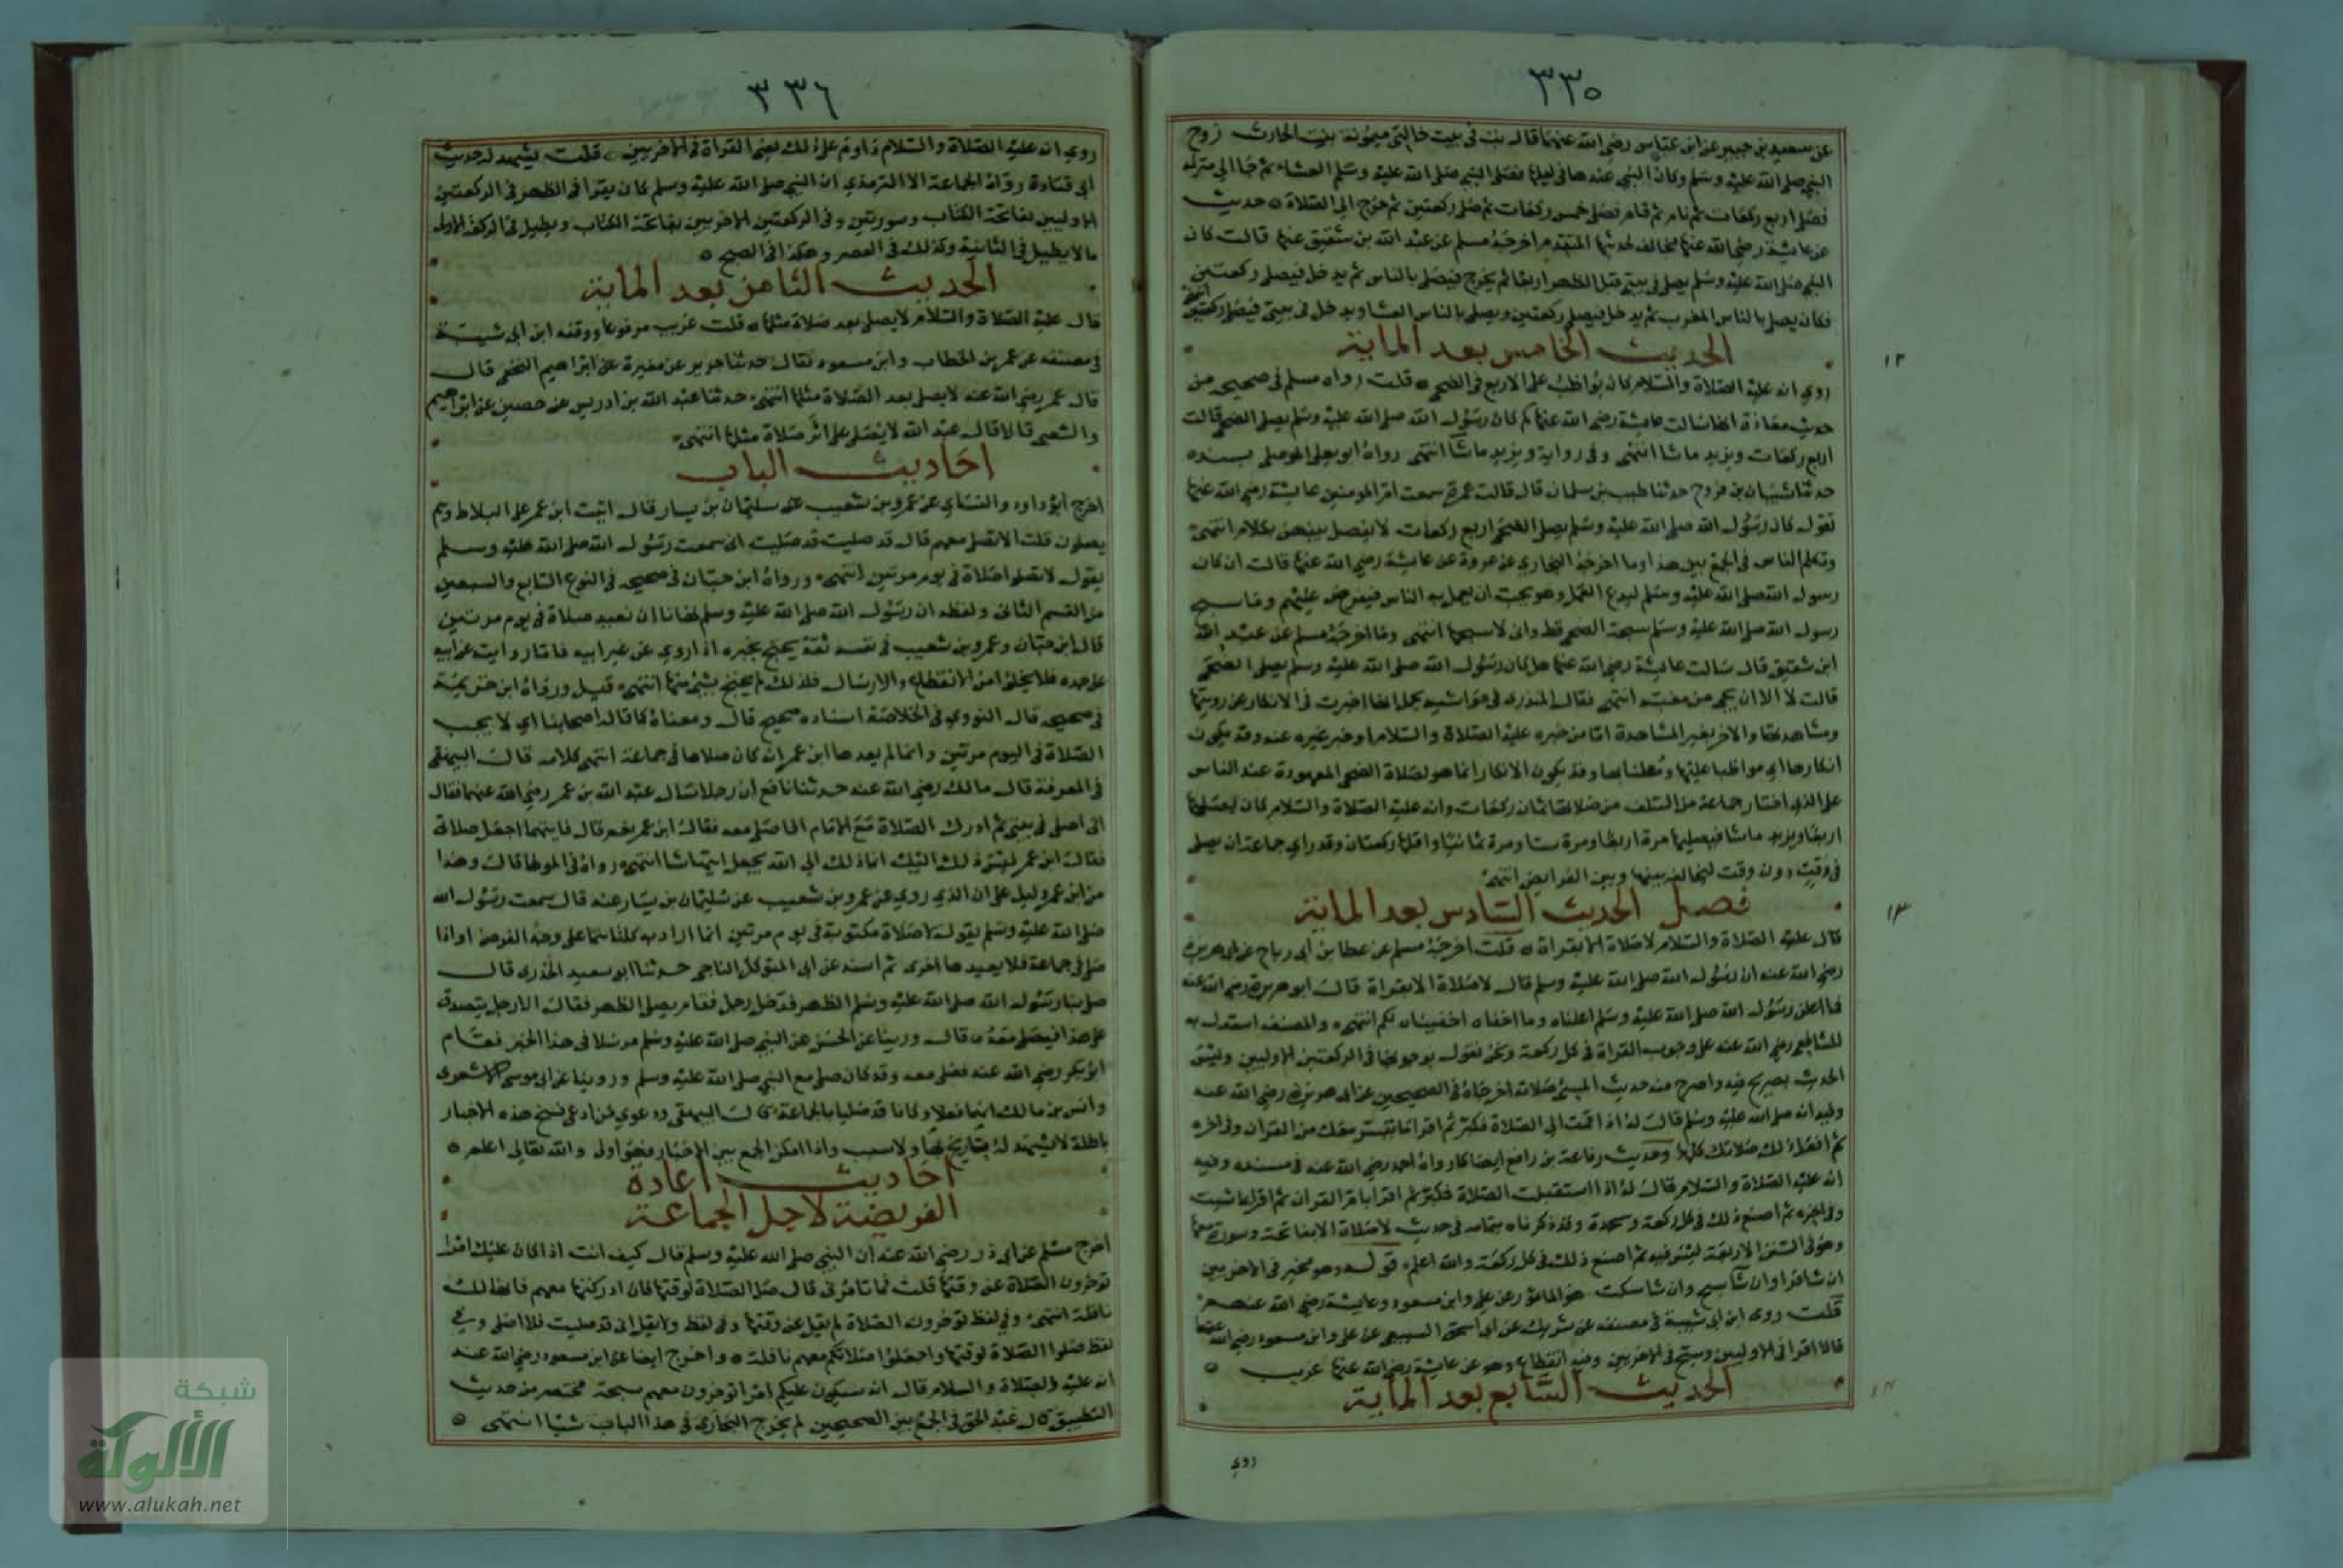 ٣٣٥
عن سعيد بن جبير عن ابن عباس رضي الله عنهما قال بت في بيت خالتي ميمونة بنت الحارث زوج
النبي صلى الله عليه وسلم وكان النبي عندها في ليلتها فصلى النبي صلى الله عليه وسلم العشاء ثم جا الى منزله
فصلى اربع ركعات ثم نام ثم قام فصلى خمس ركعات ثم صلى ركعتين ثم خرج الى الصلاة ه حديث
عن عايشة رضي الله عنها مخالف لحديثها المتقدم اخرجه مسلم عن عبد الله بن شقيق عنها قالت كان
النبي صلى الله عليه وسلم يصلي في بيتي قبل الظهر اربعا ثم يخرج فيصلي بالناس ثم يدخل فيصلي ركعتين
فكان يصلي بالناس المغرب ثم يدخل فيصلي ركعتين ويصلي بالناس العشا ويدخل في بيتي فيصلي ركعتين انتهى
الحديث الخامس بعد الماية
١٢
روي انه عليه الصلاة والسلام كان يواظب على الاربع في الضحى ه قلت رواه مسلم في صحيحه من
حديث معاذة انها سالت عايشة رضي الله عنها كم كان رسول الله صلى الله عليه وسلم يصلي الضحى قالت
اربع ركعات ويزيد ما شا انتهى وفي رواية ويزيد ما شا انتهى رواه ابو يعلى الموصلي بسنده
حدثنا شيبان بن فروخ حدثنا طيب بن سلمان قال قالت عمرة سمعت ام المومنين عايشة رضي الله عنها
تقول كان رسول الله صلى الله عليه وسلم يصلي الضحى اربع ركعات لا يفصل بينهن بكلام انتهى
وتكلم الناس في الجمع بين هذا وما اخرجه البخاري عن عروة عن عايشة رضي الله عنها قالت ان كان
رسول الله صلى الله عليه وسلم ليدع العمل وهو يحب ان يعمل به الناس فيفرض عليهم وما سبح
رسول الله صلى الله عليه وسلم سبحة الضحى قط واني لاسبحها انتهى وما اخرجه مسلم عن عبد الله
ابن شقيق قال سالت عايشة رضي الله عنها هل كان رسول الله صلى الله عليه وسلم يصلي الضحى
قالت لا الا ان يجي من مغيبه انتهى فقال المنذري في حواشيه يحمل انها اخبرت في الانكار عن رويتها
ومشاهدتها والاخر بغير المشاهدة اما من خبره عليه الصلاة والسلام او خبر غيره عنه وقد يكون
انكارها اي مواظبا عليها ومعلنا بها وقد يكون الانكار انما هو لصلاة الضحى المعهودة عند الناس
على الذي اختار جماعة من السلف من صلاتها ثمان ركعات وانه عليه الصلاة والسلام كان يصليها
اربعا ويزيد ما شا فيصليها مرة اربعا ومرة ستا ومرة ثمانيا واقلها ركعتان وقد راي جماعة ان يصلى
في وقت دون وقت ليخالف بينها وبين الفرايض انتهى
فصل الحديث السادس بعد الماية
١٣
قال عليه الصلاة والسلام لا صلاة الا بقراة ه قلت اخرجه مسلم عن عطا بن ابي رباح عن ابي هريرة
رضي الله عنه ان رسول الله صلى الله عليه وسلم قال لا صلاة الا بقراة قال ابو هريرة رضي الله عنه
فما اعلن رسول الله صلى الله عليه وسلم اعلناه وما اخفاه اخفيناه لكم انتهى ه والمصنف استدل به
للشافعي رضي الله عنه على وجوب القراة في كل ركعة ونحن نقول بوجوبها في الركعتين الاوليين وليس
الحديث بصريح فيه واصرح منه حديث المسي صلاته اخرجاه في الصحيحين عن ابي هريرة رضي الله عنه
وفيه انه صلى الله عليه وسلم قال له اذا قمت الى الصلاة فكبر ثم اقرا ما تيسر معك من القران وفي اخره
ثم افعل ذلك في صلاتك كلها وحديث رفاعة بن رافع ايضا كما رواه احمد رضي الله عنه في مسنده وفيه
انه عليه الصلاة والسلام قال له اذا استقبلت الصلاة فكبر ثم اقرا بام القران ثم اقرا بما شيت
وفي اخره ثم اصنع ذلك في كل ركعة وسجدة وقد ذكرناه بتمامه في حديث لا صلاة الا بفاتحة وسورة معها
وهو في السنن الاربعة ليس فيه ثم اصنع ذلك في كل ركعة والله اعلم ه قوله وهو مخير في الاخريين
ان شا قرا وان شا سبح وان شا سكت هو الماثور عن علي وابن مسعود وعايشة رضي الله عنهم
قلت روى ابن ابي شيبة في مصنفه عن شريك عن ابي اسحق السبيعي عن علي وابن مسعود رضي الله عنهما
قالا اقرا في الاوليين وسبح في الاخريين وفيه انقطاع وهو عن عايشة رضي الله عنها غريب ه
الحديث السابع بعد الماية
روي
٣٣٦
روي انه عليه الصلاة والسلام داوم على ذلك يعني القراة في الاخريين ه قلت يشهد له حديث
ابي قتادة رواه الجماعة الا الترمذي ان النبي صلى الله عليه وسلم كان يقرا في الظهر في الركعتين
الاوليين بفاتحة الكتاب وسورتين وفي الركعتين الاخريين بفاتحة الكتاب ويطيل في الركعة الاولى
ما لا يطيل في الثانية وكذلك في العصر وهكذا في الصبح ه
الحديث الثامن بعد الماية
قال عليه الصلاة والسلام لا يصلي بعد صلاة مثلها ه قلت غريب مرفوعا ووقفه ابن ابي شيبة
في مصنفه عن عمر بن الخطاب وابن مسعود فقال حدثنا جرير عن مغيرة عن ابراهيم النخعي قال
قال عمر رضي الله عنه لا يصلى بعد الصلاة مثلها انتهى حدثنا عبد الله بن ادريس عن حصين عن ابراهيم
والشعبي قالا قال عبد الله لا يصلى على اثر صلاة مثلها انتهى
احاديث الباب
اخرج ابو داود والنساي عن عمرو بن شعيب عن سليمان بن يسار قال اتيت ابن عمر على البلاط وهم
يصلون قلت الا تصلي معهم قال قد صليت قد صليت اني سمعت رسول الله صلى الله عليه وسلم
يقول لا تصلوا صلاة في يوم مرتين انتهى ورواه ابن حبان في صحيحه في النوع السابع والسبعين
من القسم الثاني ولفظه ان رسول الله صلى الله عليه وسلم نهانا ان نعيد صلاة في يوم مرتين
قال ابن حبان وعمرو بن شعيب في نفسه ثقة يحتج بخبره اذا روى عن غير ابيه فاما روايته عن ابيه
عن جده فلا يخلو من الانقطاع والارسال فلذلك لم يحتج بشي منها انتهى قيل ورواه ابن خزيمة
في صحيحه قال النووي في الخلاصة اسناده صحيح قال ومعناه كما قال اصحابنا اي لا يجب
الصلاة في اليوم مرتين وانما لم يعدها ابن عمر انه كان صلاها في جماعة انتهى كلامه قال البيهقي
في المعرفة قال مالك رضي الله عنه حدثنا نافع ان رجلا سال عبد الله بن عمر رضي الله عنهما فقال
اني اصلي في بيتي ثم ادرك الصلاة مع الامام افاصلي معه فقال ابن عمر نعم قال فايتهما اجعل صلاتي
فقال ابن عمر ليس ذلك اليك انما ذلك الى الله يجعل ايتهما شا انتهى رواه في الموطا قال وهذا
من ابن عمر دليل على ان الذي روي عن عمرو بن شعيب عن سليمان بن يسار عنه قال سمعت رسول الله
صلى الله عليه وسلم يقول لا صلاة مكتوبة في يوم مرتين انما اراد به كلتاهما على وجه الفرض او اذا
صلى في جماعة فلا يعيدها اخرى ثم اسند عن ابي المتوكل الناجي حدثنا ابو سعيد الخدري قال
صلى بنا رسول الله صلى الله عليه وسلم الظهر فدخل رجل فقام يصلي الظهر فقال الا رجل يتصدق
على هذا فيصلي معه ه قال وروينا عن الحسن عن النبي صلى الله عليه وسلم مرسلا في هذا الخبر فقام
ابو بكر رضي الله عنه فصلى معه وقد كان صلى مع النبي صلى الله عليه وسلم وروينا عن ابي موسى الاشعري
وانس بن مالك انهما فعلا وكانا قد صليا بالجماعة قال البيهقي ودعوي من ادعى نسخ هذه الاخبار
باطلة لا يشهد له بتاريخ لها ولا سبب واذا امكن الجمع بين الاخبار فهو اولى والله تعالى اعلم ه
احاديث اعادة
الفريضة لاجل الجماعة
اخرج مسلم عن ابي ذر رضي الله عنه ان النبي صلى الله عليه وسلم قال كيف انت اذا كان عليك امرا
يوخرون الصلاة عن وقتها قلت فما تامرني قال صل الصلاة لوقتها فان ادركتها معهم فانها لك
نافلة انتهى وفي لفظ يوخرون الصلاة لم يقل عن وقتها وفي لفظ ولا تقل اني قد صليت فلا اصلي وفي
لفظ صلوا الصلاة لوقتها واجعلوا صلاتكم معهم نافلة ه واخرج ايضا عن ابن مسعود رضي الله عنه
انه عليه الصلاة والسلام قال انه سيكون عليكم امرا يوخرون معهم سبحة مختصر من حديث
التطبيق قال عبد الحق في الجمع بين الصحيحين لم يخرج البخاري في هذا الباب شيا انتهى ه
شبكة
الألوكة
www.alukah.net